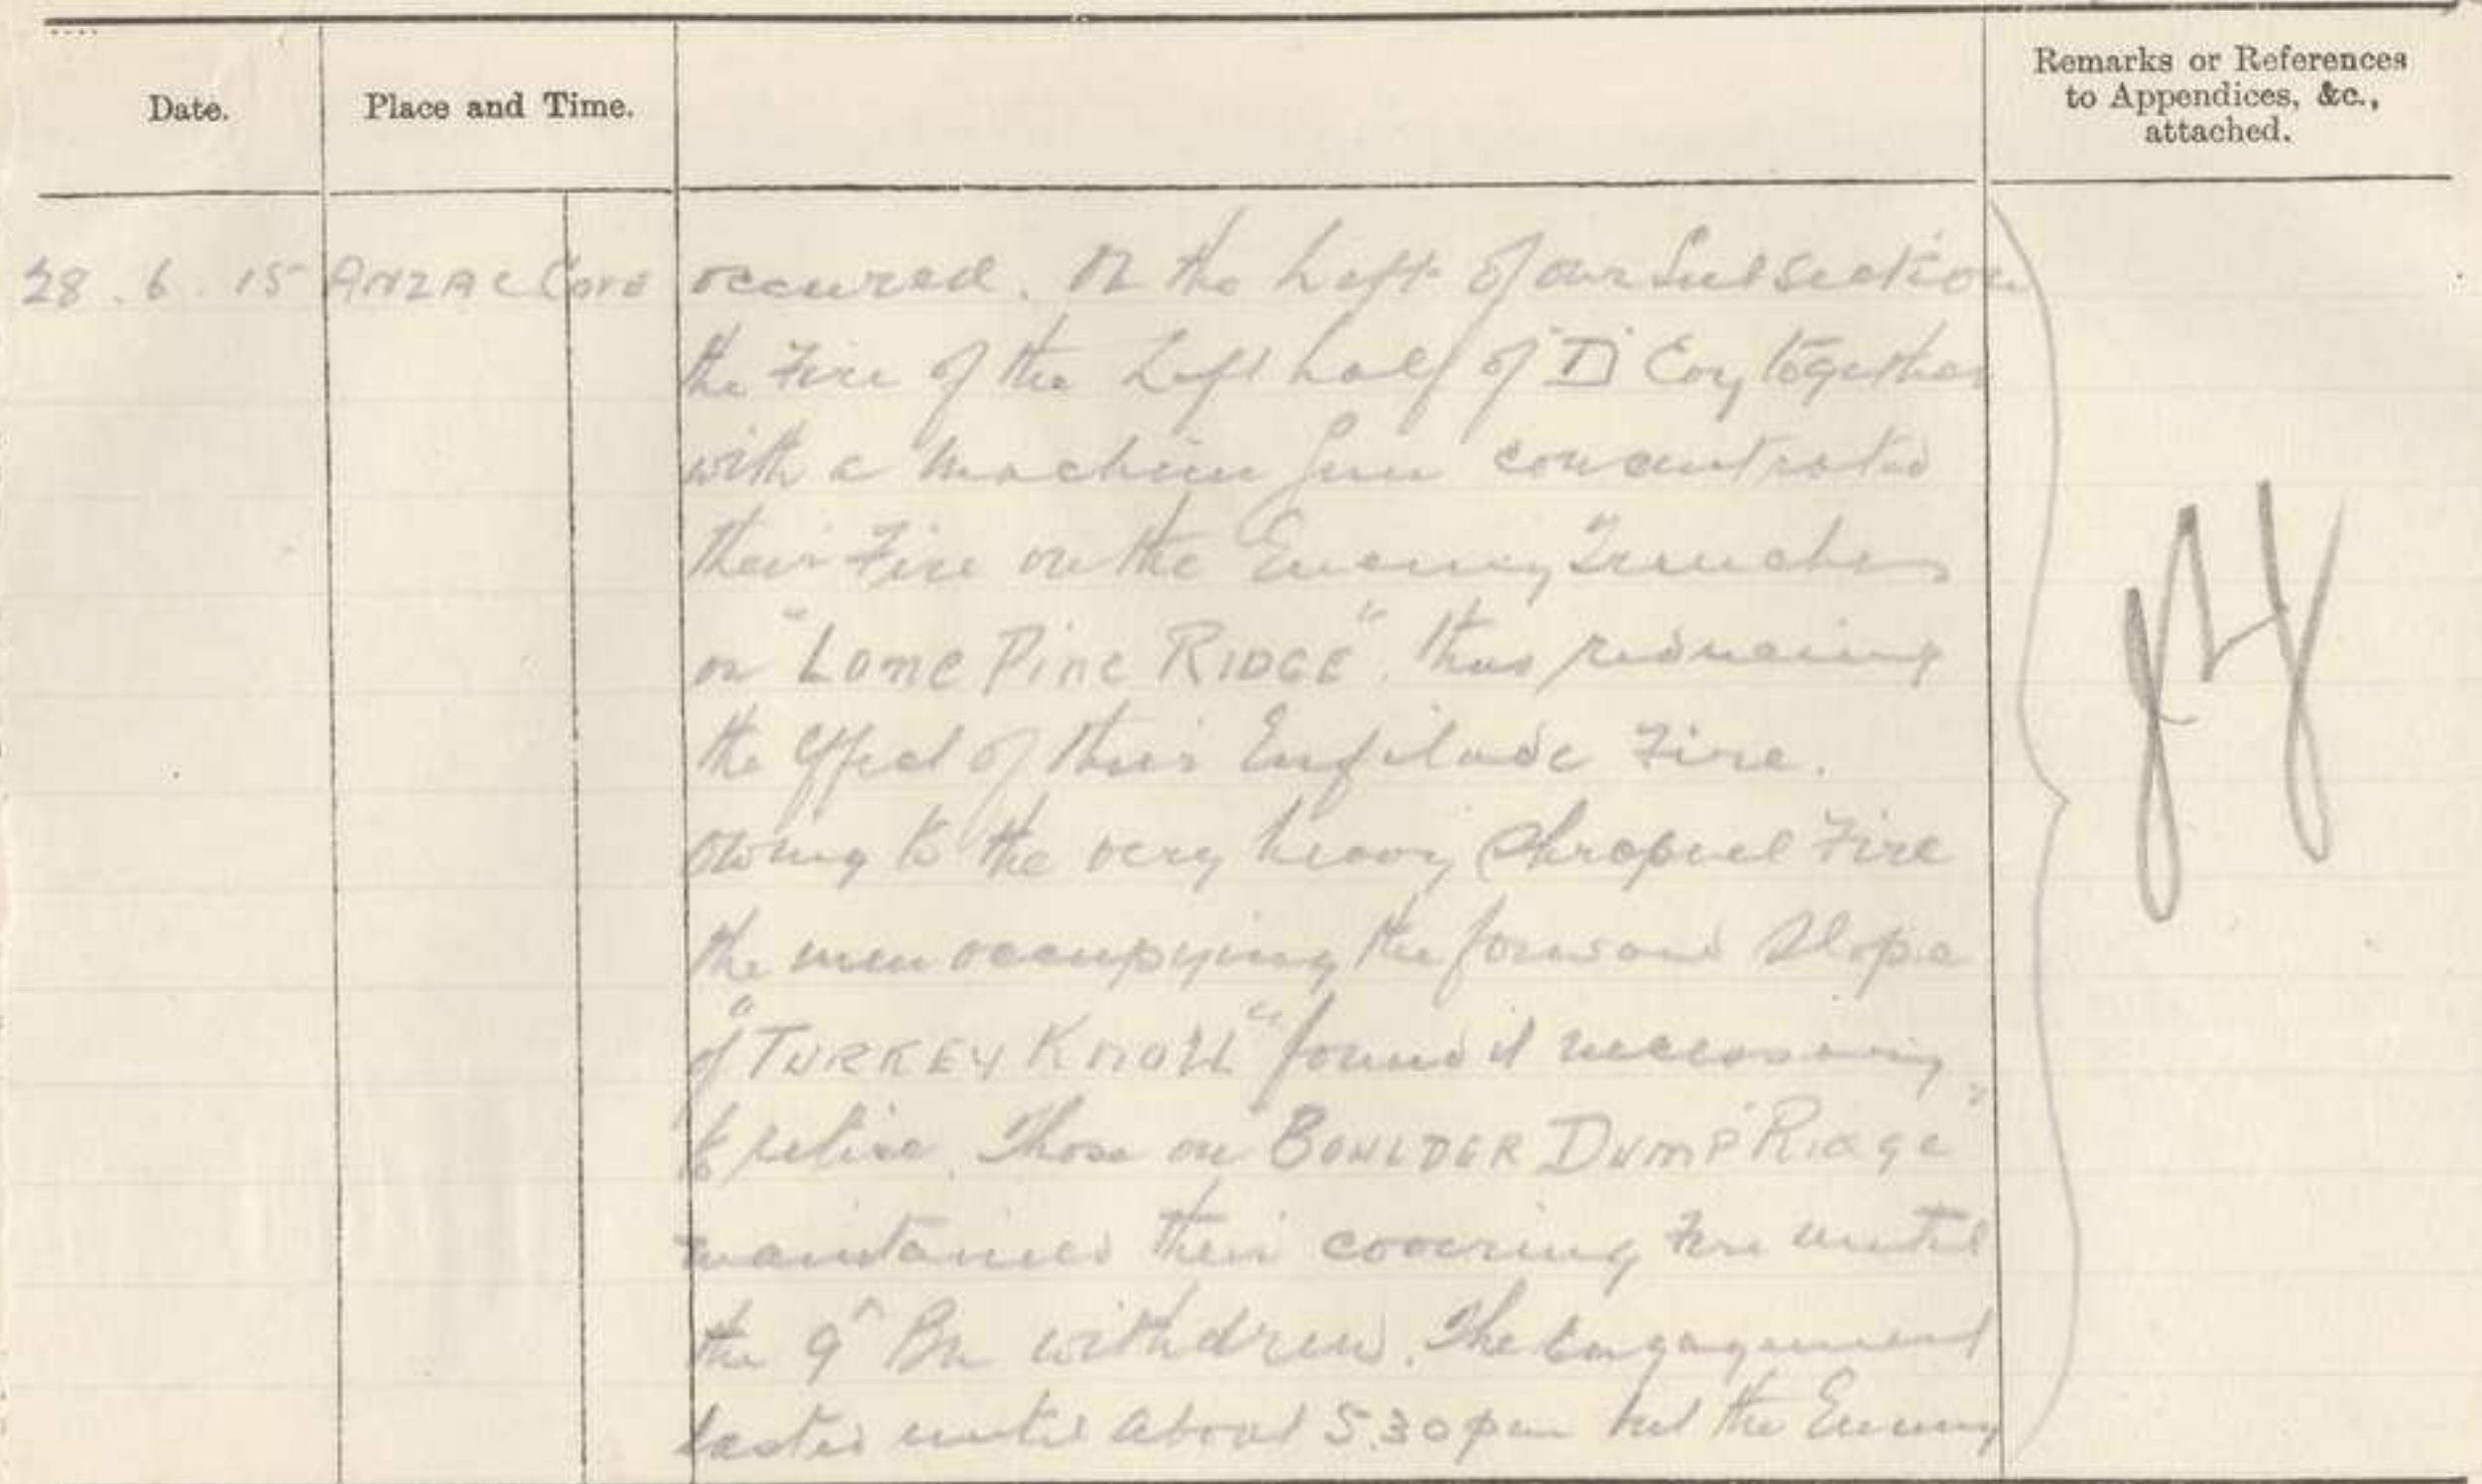 Date.
Place and Time.
Remarks or References
to Appendices, &c.,
attached.
28.6.15 ANZAC Cove
occured. On the Left of our Subsection
the Fire of the Left half of "D" Coy together
with a Machine Gun concentrated
their Fire on the Enemy Trenches
on "LONE PINE RIDGE". thus reducing
the effect of their Enfilade Fire.
Owing to the very heavy Shrapnel Fire
the men occupying the forward Slope
of "TURKEY KNOLL" found it necessary
to retire. Those on "BOULDER DUMP Ridge"
maintained their covering Fire until
the 9th Bn withdrew. The Engagement
lasted until about 5.30 pm but the Enemy